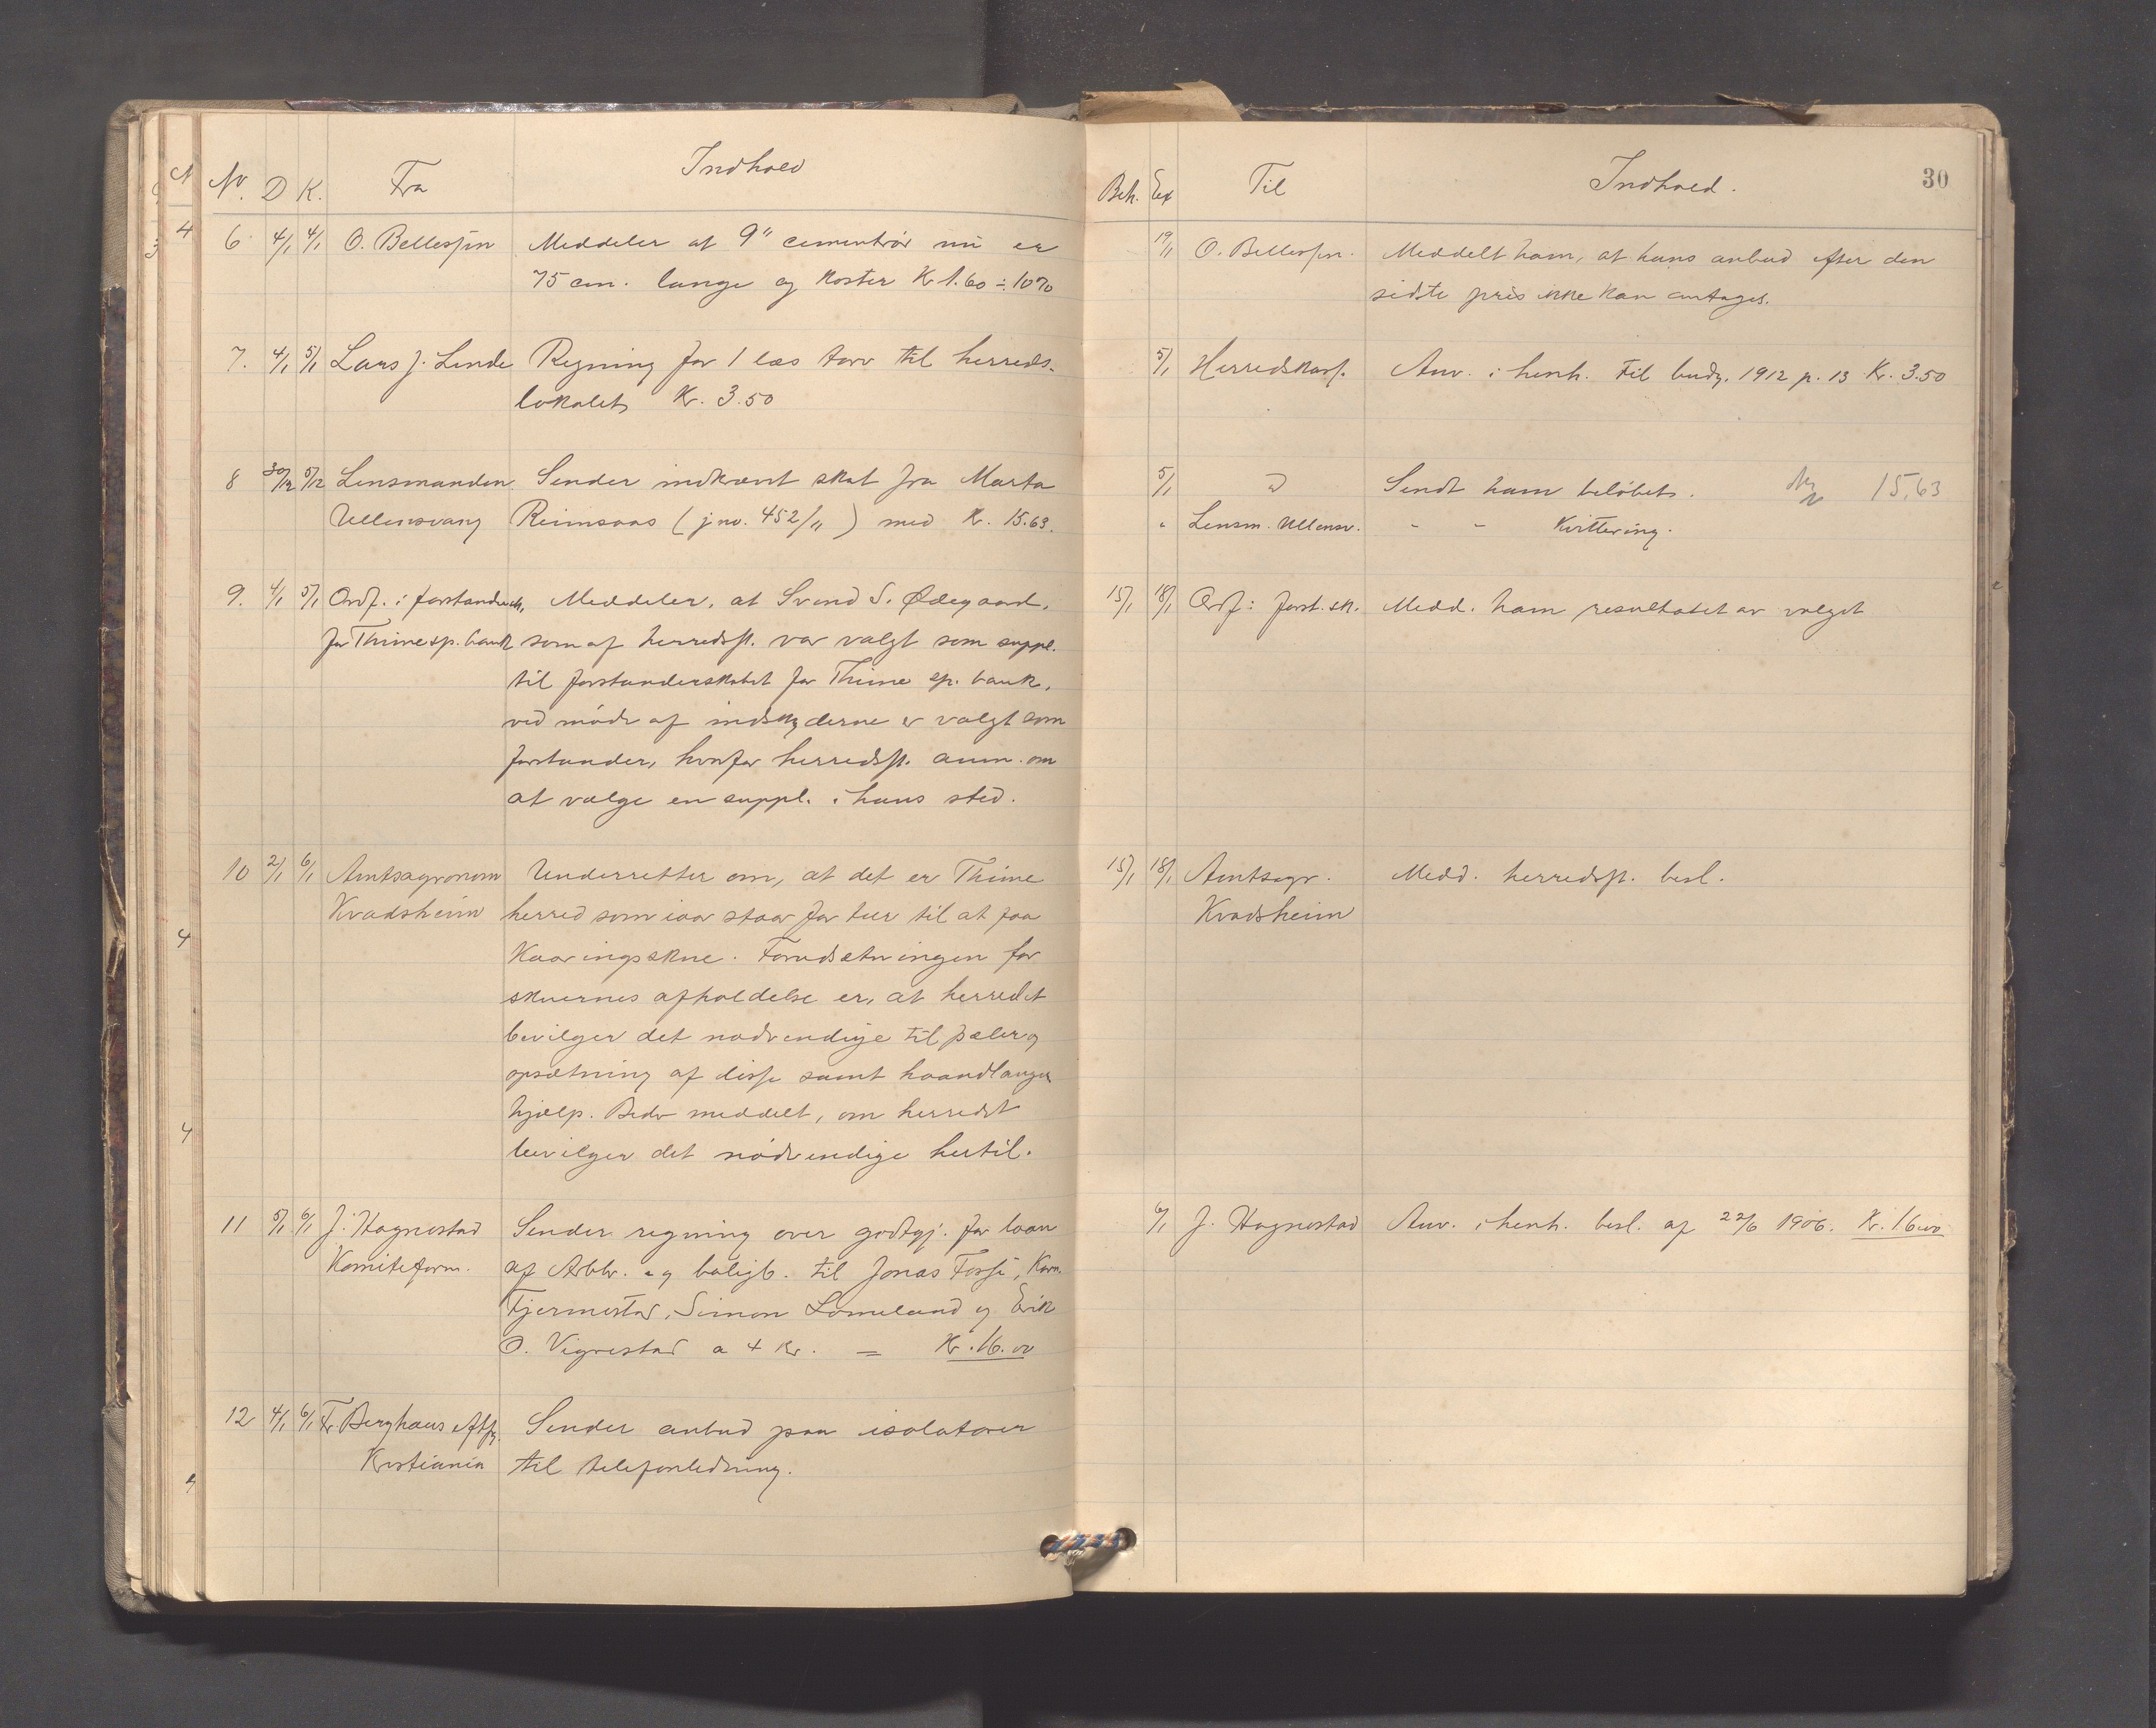 No. D K. Fra Indhold
6 4/1 4/1 O. Bellessen Meddeler at 9" cementrør nu er
75 cm. lange og koster Kr 1.60 ÷ 10%
7. 4/1 5/1 Lars J. Linde Regning for 1 læs torv til herreds-
lokalet Kr. 3.50
8 30/12 5/12 Lensmanden Sender indkrævt skat fra Marta
Ullensvang Reimsaas (j no. 452/11) med Kr. 15.63.
9. 4/1 5/1 Ordf. i forstandersk. Meddeler, at Svend S. Ødegaard,
for Thime sp. bank som af herredsst. var valgt som suppl.
til forstanderskabet for Thime sp. bank,
ved møde af indskyderne er valgt som
forstander, hvorfor herredsst. anm. om
at vælge en suppl. i hans sted.
10 2/1 6/1 Amtsagronom Underretter om, at det er Thime
Kvadsheim herred som iaar staar for tur til at faa
Kaaringsskue. Forudsætningen for
skuernes afholdelse er, at herredet
bevilger det nødvendige til pæler og
opsætning af disse samt haandlanger
hjælp. Beder meddelt, om herredet
bevilger det nødvendige hertil.
11 5/1 6/1 J. Hognestad Sender regning over godtgj. for laan
Komiteform. af Arbbr. og boligb. til Jonas Fosse, Karn.
Tjermestad, Simon Lomeland og Erik
O. Vigrestad a 4 Kr. = Kr. 16.00
12 4/1 6/1 Fr. Berghaus eftfg. Sender anbud paa isolatorer
Kristiania til telefonledning.
Beh. Ex Til Indhold. 30
19/1 O. Bellessen. Meddelt ham, at hans anbud efter den
sidste pris ikke kan antages.
5/1 Herredskass. Anv. i henh. til budg. 1912 p. 13 Kr. 3.50
5/1 Sendt ham beløbet. 15,63
" Lensm. Ullensv. - - Kvittering.
15/1 18/1 Ordf. i forst. sk. Medd. ham resultatet av valget
15/1 18/1 Amtsagr. Medd. herredsst. besl.
Kvadsheim
6/1 J. Hognestad Anv. i henh. besl. af 22/6 1906. Kr. 16.00